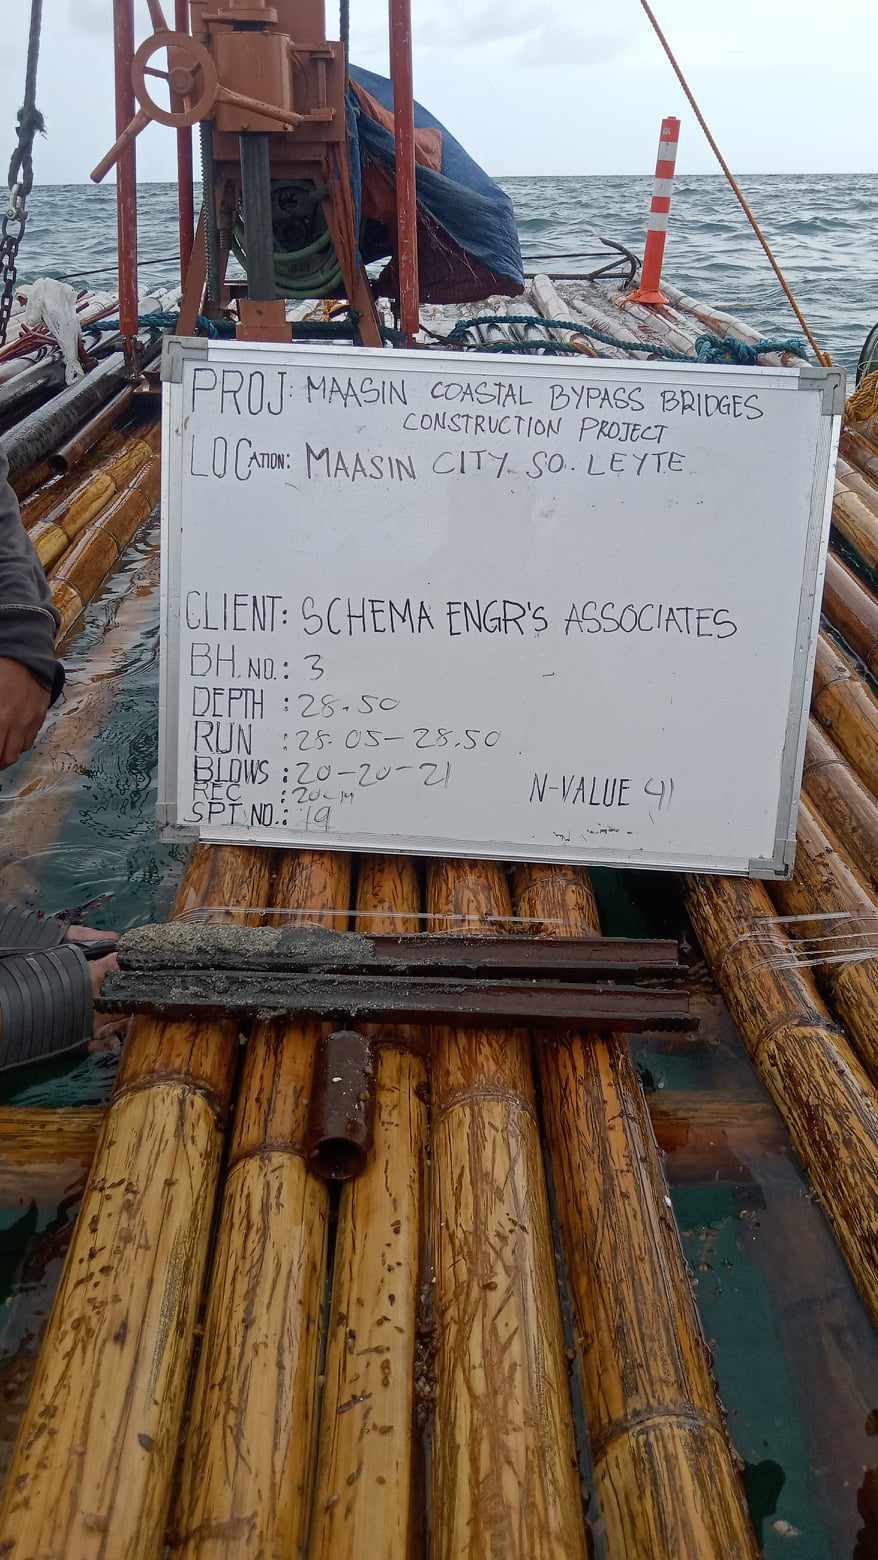 PROJ: MAASIN COASTAL BYPASS BRIDGES
CONSTRUCTION PROJECT
LOCATION: MAASIN CITY SO. LEYTE
CLIENT: SCHEMA ENGR'S ASSOCIATES
BH. NO.: 3
DEPTH : 28.50
RUN : 28.05-28.50
BLOWS : 20-20-21
N-VALUE 41
REC :
SPT NO.: 19